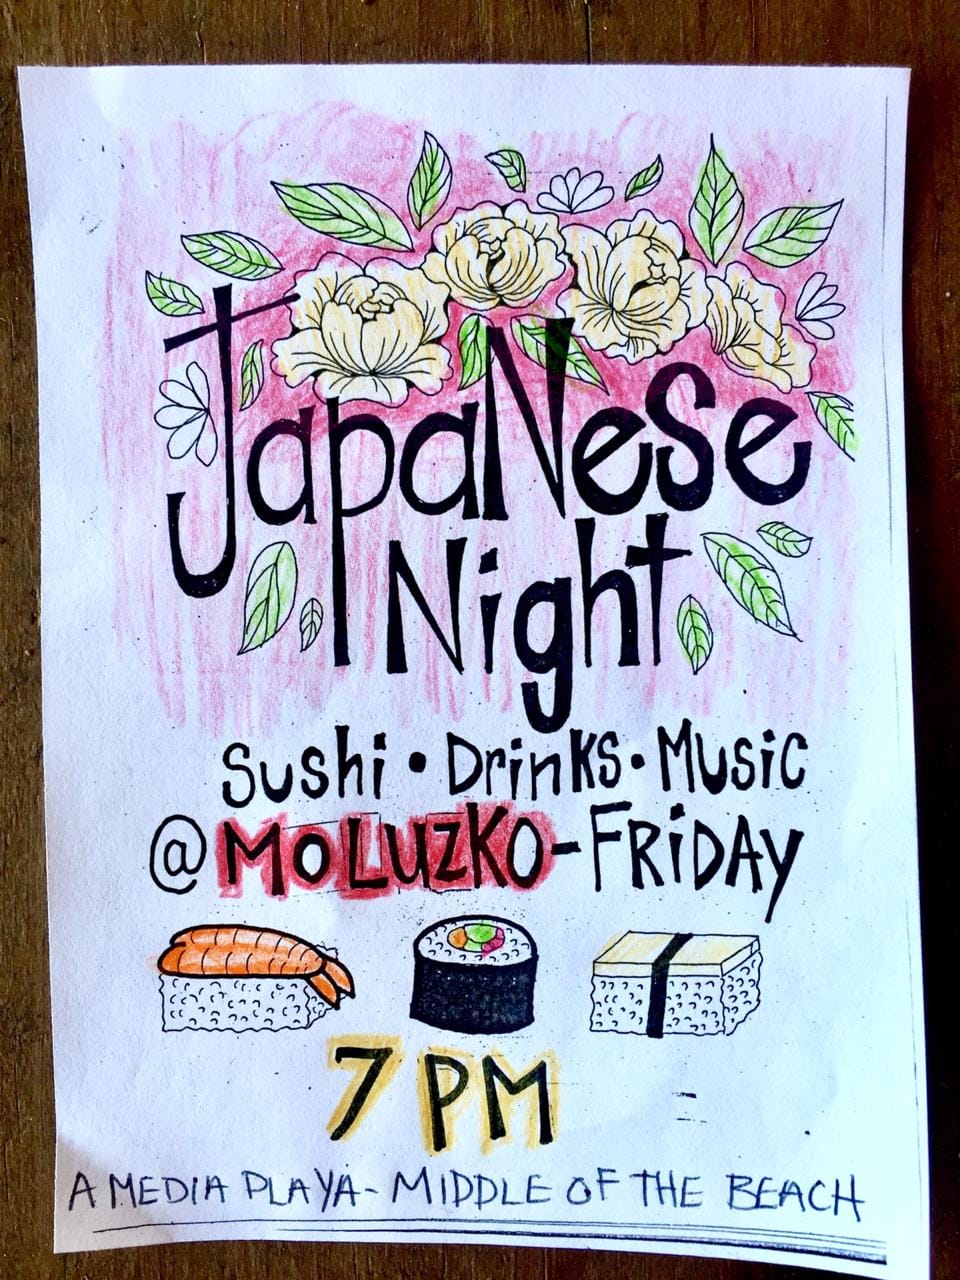 JapaNese
Night
Sushi • Drinks • Music
@MOLLUZKO-FRiDAy
7 PM
A MEDIA PLAYA - MIDDLE OF THE BEACH